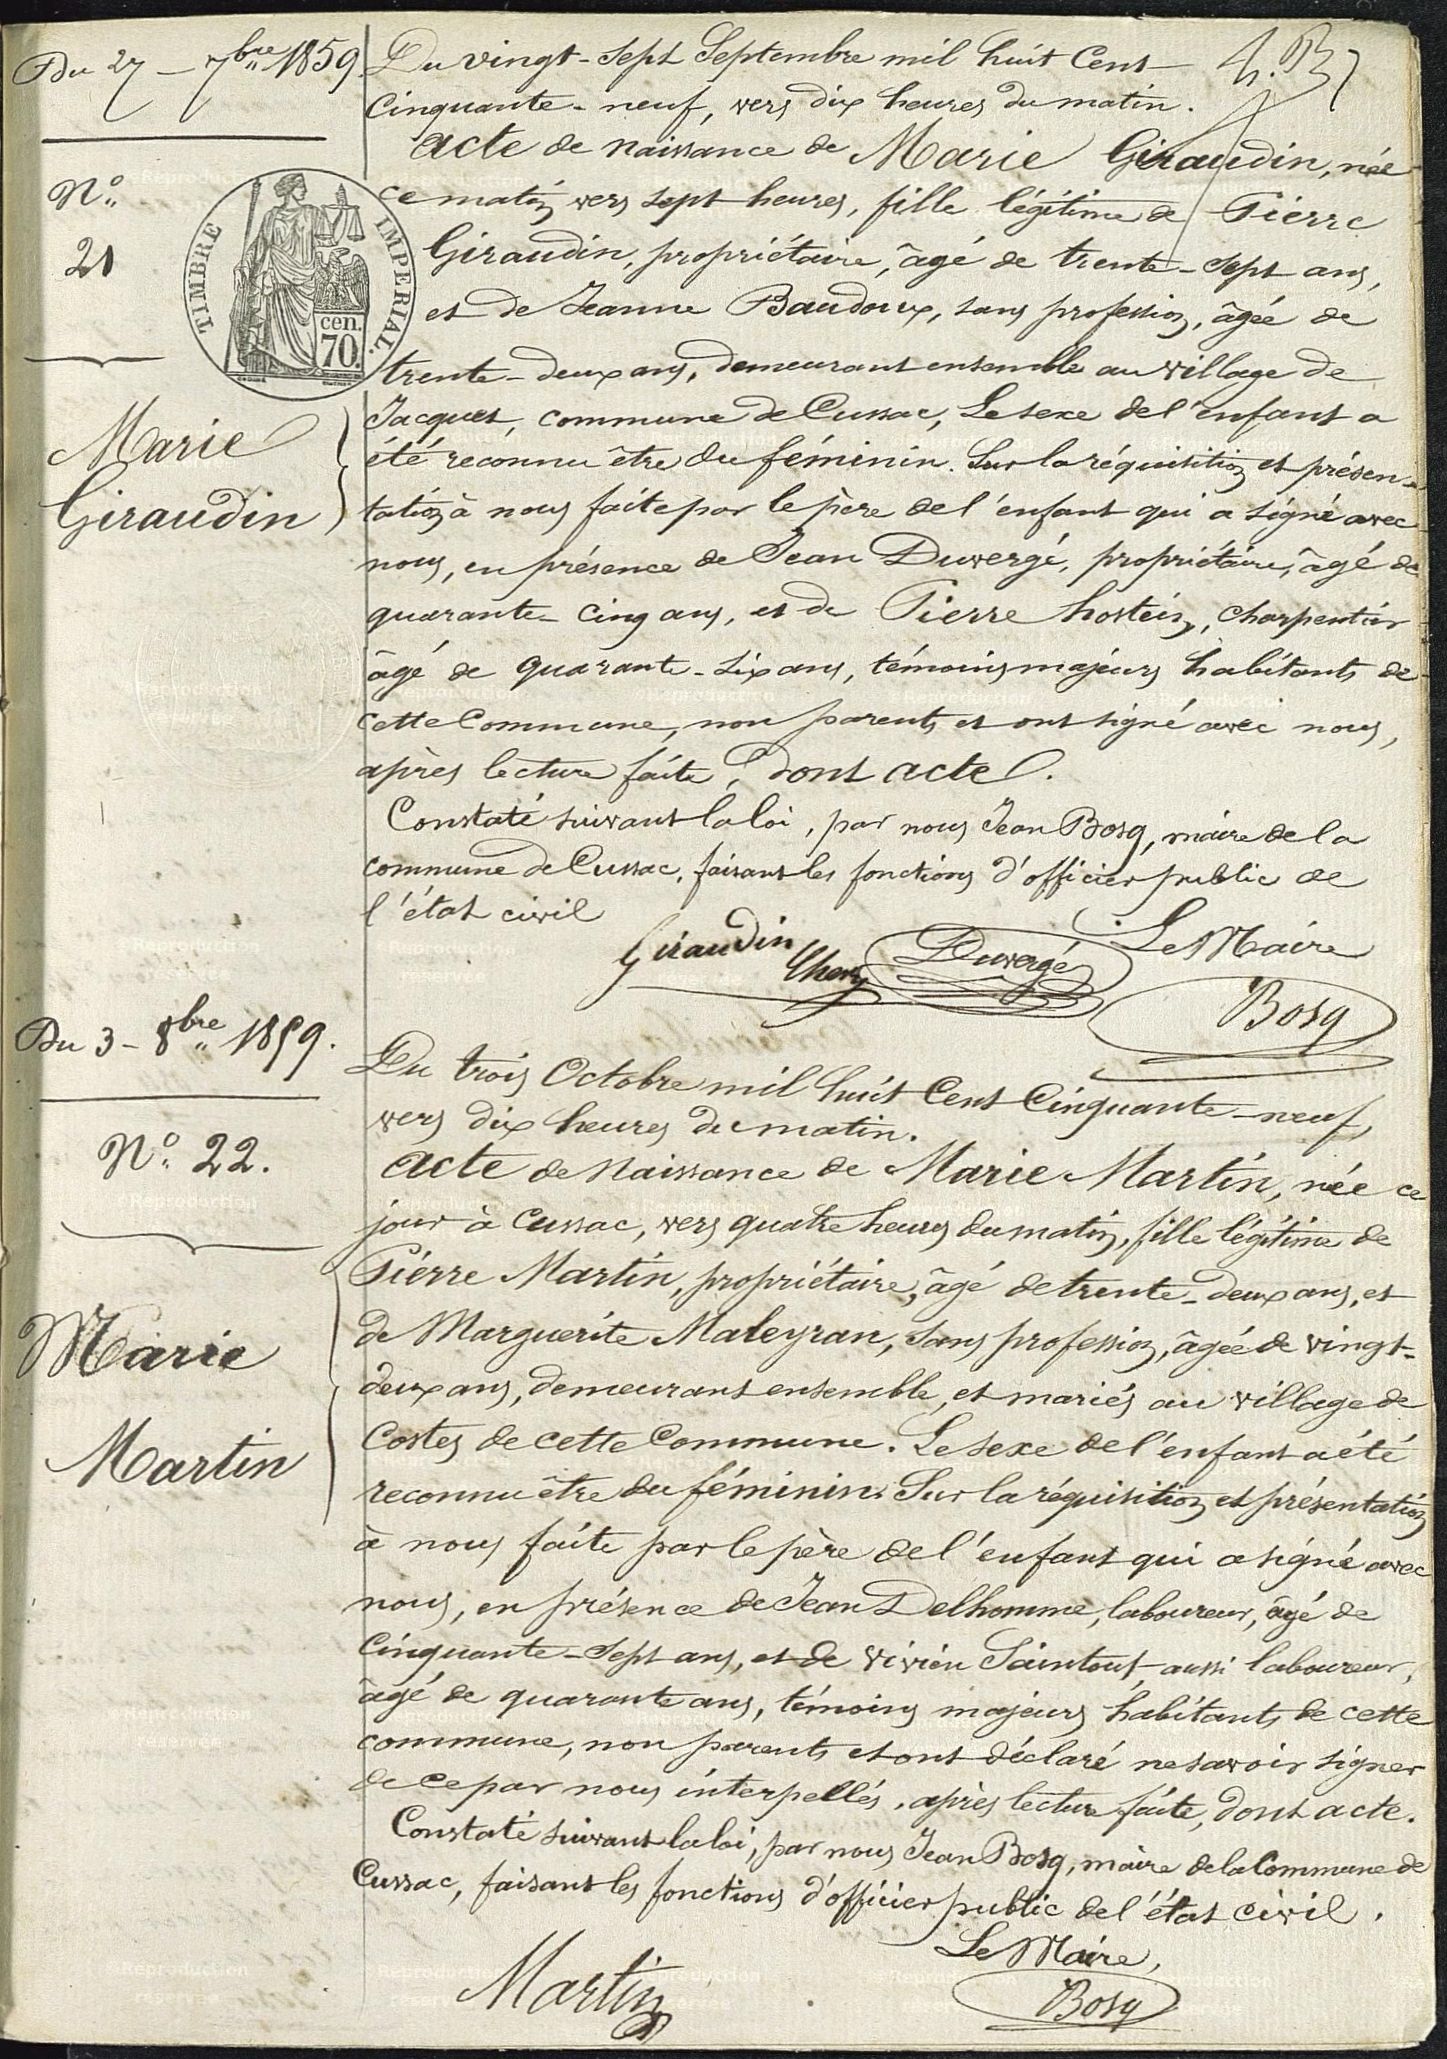 Du 27 - 7bre 1859
Du vingt-sept Septembre mil huit Cent
cinquante-neuf, vers dix heures du matin.
acte de naissance de Marie Giraudin, née
ce matin vers sept heures, fille légitime de Pierre
Giraudin, propriétaire, âgé de trente-sept ans,
et de Jeanne Baudoux, sans profession, âgée de
trente-deux ans, demeurant ensemble au village de
Jacques, commune de Cussac, Le sexe de l'enfant a
été reconnu être du féminin. Sur la réquisition et présen-
tation à nous faite par le père de l'enfant qui a signé avec
nous, en présence de Jean Duvergé, propriétaire, âgé de
quarante-cinq ans, et de Pierre hostein, charpentier
âgé de quarante-six ans, témoins majeurs habitants de
cette Commune, non parents et ont signé avec nous,
après lecture faite, dont acte.
Constaté suivant la loi, par nous Jean Bosq, maire de la
commune de Cussac, faisant les fonctions d'officier public de
l'état civil
Le Maire
Giraudin
Duvergé
Bosq
N°
21
TIMBRE IMPERIAL.
cen.
70
Marie
Giraudin
Du 3 - 8bre 1859.
N° 22.
Marie
Martin
Du trois Octobre mil huit Cent Cinquante-neuf,
vers dix heures du matin.
acte de Naissance de Marie Martin, née ce
jour à Cussac, vers quatre heures du matin, fille légitime de
Pierre Martin, propriétaire, âgé de trente-deux ans, et
de Marguerite Maleyran, sans profession, âgée de vingt-
deux ans, demeurant ensemble, et mariés au village de
Costes de cette Commune. Le sexe de l'enfant a été
reconnu être du féminin. Sur la réquisition et présentation
à nous faite par le père de l'enfant qui a signé avec
nous, en présence de Jean Delhomme, laboureur, âgé de
cinquante-sept ans, et de vivien Saintout aussi laboureur,
âgé de quarante ans, témoins majeurs habitants de cette
commune, non parents et ont déclaré ne savoir signer
de ce par nous interpellés, après lecture faite, dont acte.
Constaté suivant la loi, par nous Jean Bosq, maire de la Commune de
Cussac, faisant les fonctions d'officier public de l'état civil.
Le Maire,
Martin
Bosq